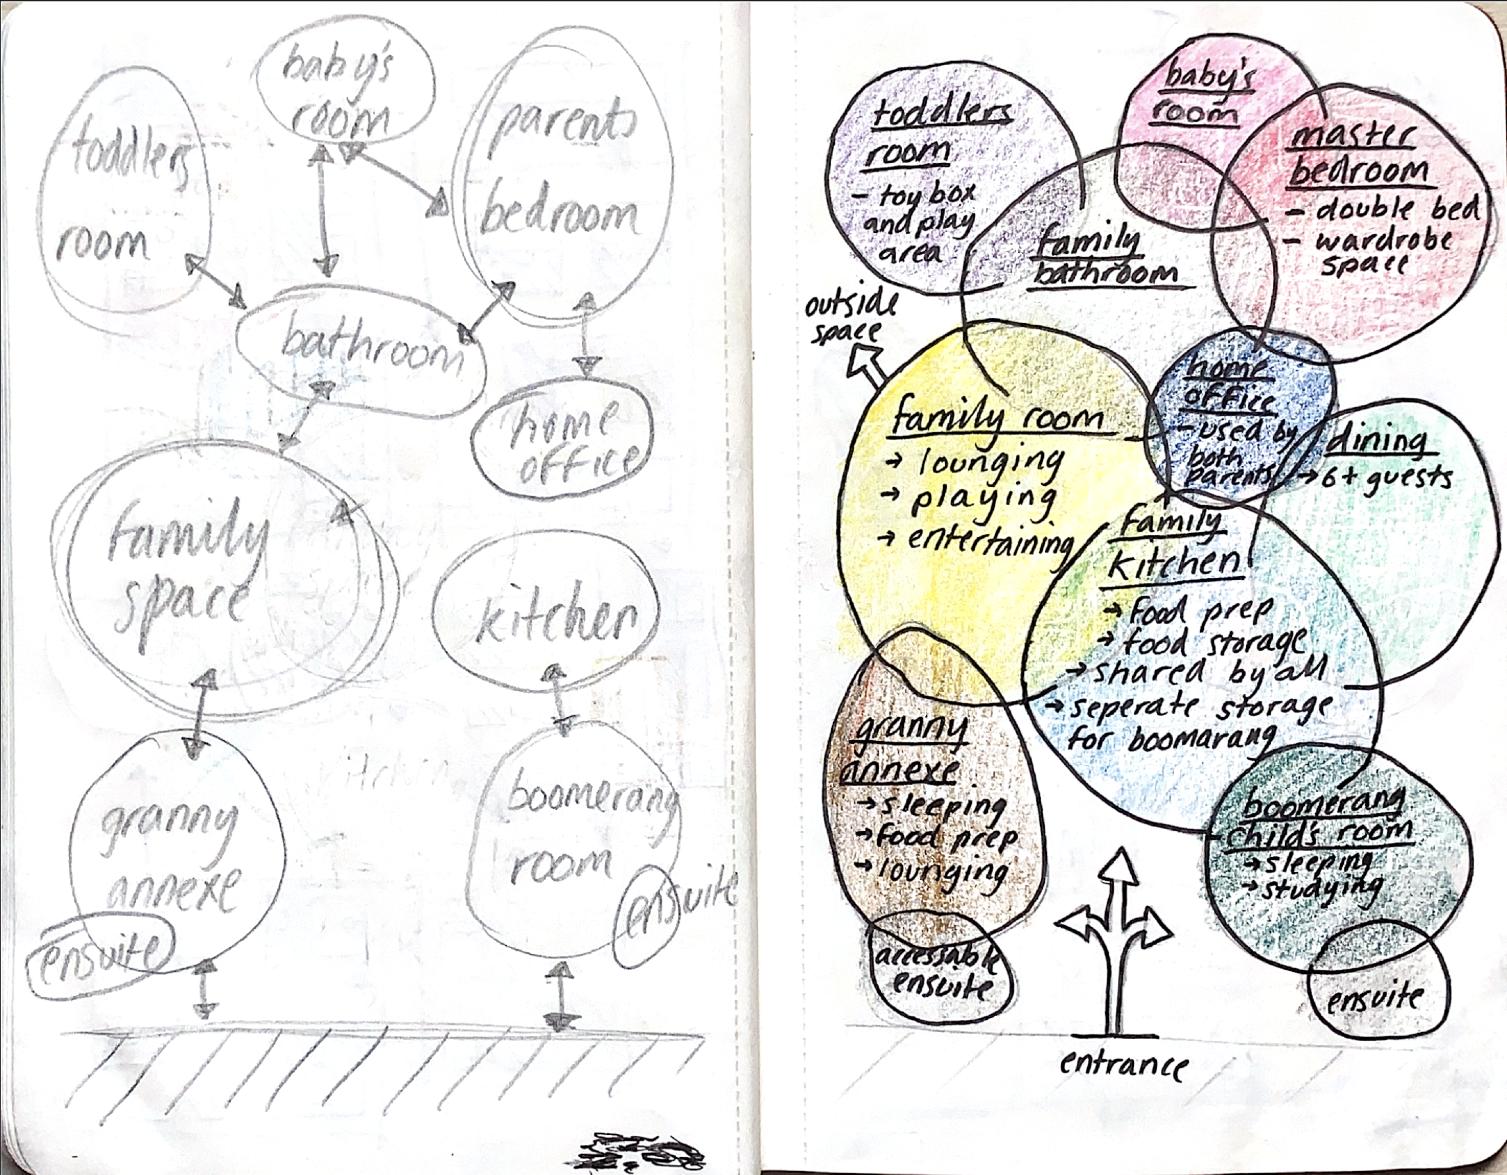 baby's
room
toddlers
room
parents
bedroom
bathroom
home
office
family
space
kitchen
granny
annexe
ensuite
boomerang
room
ensuite
kitchen
toddlers
room
- toy box
and play
area
baby's
room
master
bedroom
- double bed
- wardrobe
space
family
bathroom
outside
space
family room
→ lounging
→ playing
→ entertaining
home
office
- used by
both
parents
dining
→ 6+ guests
family
kitchen
→ food prep
→ food storage
→ shared by all
→ seperate storage
for boomarang
granny
annexe
→ sleeping
→ food prep
→ lounging
accessable
ensuite
boomerang
child's room
→ sleeping
→ studying
ensuite
entrance